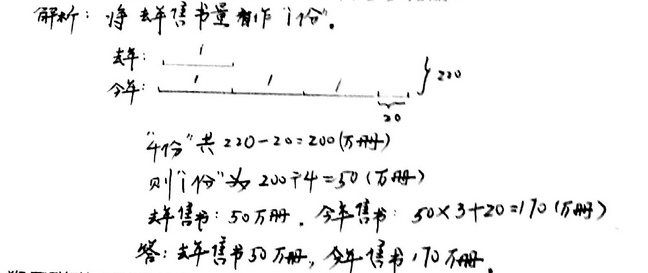 解析：将去年售书量看作“1份”。
去年： 1
今年： 1 1 1 20 } 220
“4份”共 220-20=200(万册)
则“1份”为 200÷4=50(万册)
去年售书：50万册，今年售书：50×3+20=170(万册)
答：去年售书50万册，今年售书170万册。